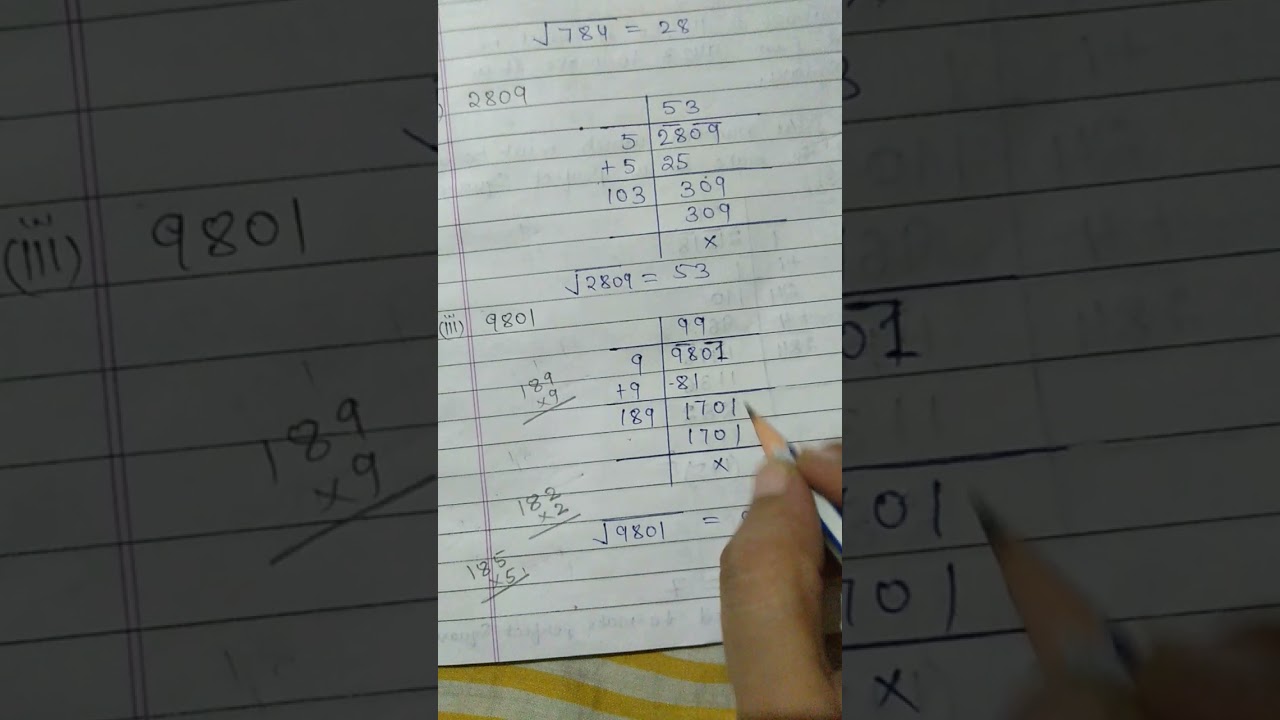 √784 = 28
2809
53
5 2809
+5 25
103 309
309
x
√2809 = 53
(iii) 9801
99
9 9801
+9 -81
189 1701
1701
x
189
x9
182
x2
√9801 =
185
x5